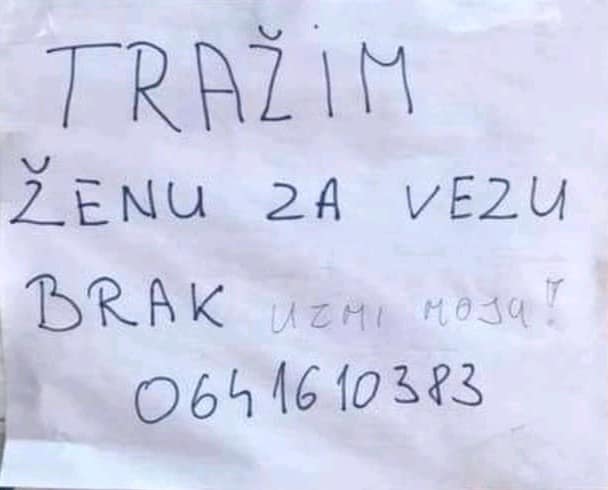 TRAŽIM
ŽENU ZA VEZU
BRAK UZMI MOJU!
0641610383